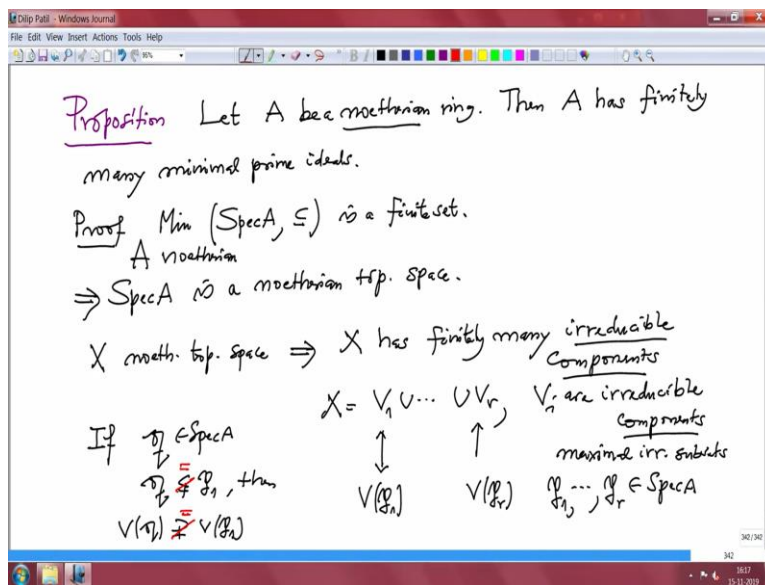 Dilip Patil - Windows Journal
File Edit View Insert Actions Tools Help
95%
B I
Proposition Let A be a noetherian ring. Then A has finitely
many minimal prime ideals.
Proof Min (Spec A, ⊆) is a finite set.
A noetherian
⇒ Spec A is a noetherian top. space.
X noeth. top. space ⇒ X has finitely many irreducible
components
X = V₁ ∪ ⋯ ∪ Vᵣ, Vᵢ are irreducible
components
maximal irr. subsets
If 𝔮 ∈ Spec A
𝔮 ⊊ 𝔭₁, then
V(𝔮) ⊋ V(𝔭₁)
=
=
↕ ↑
V(𝔭₁) V(𝔭ᵣ) 𝔭₁, ⋯, 𝔭ᵣ ∈ Spec A
342/342
342
1617
15-11-2019